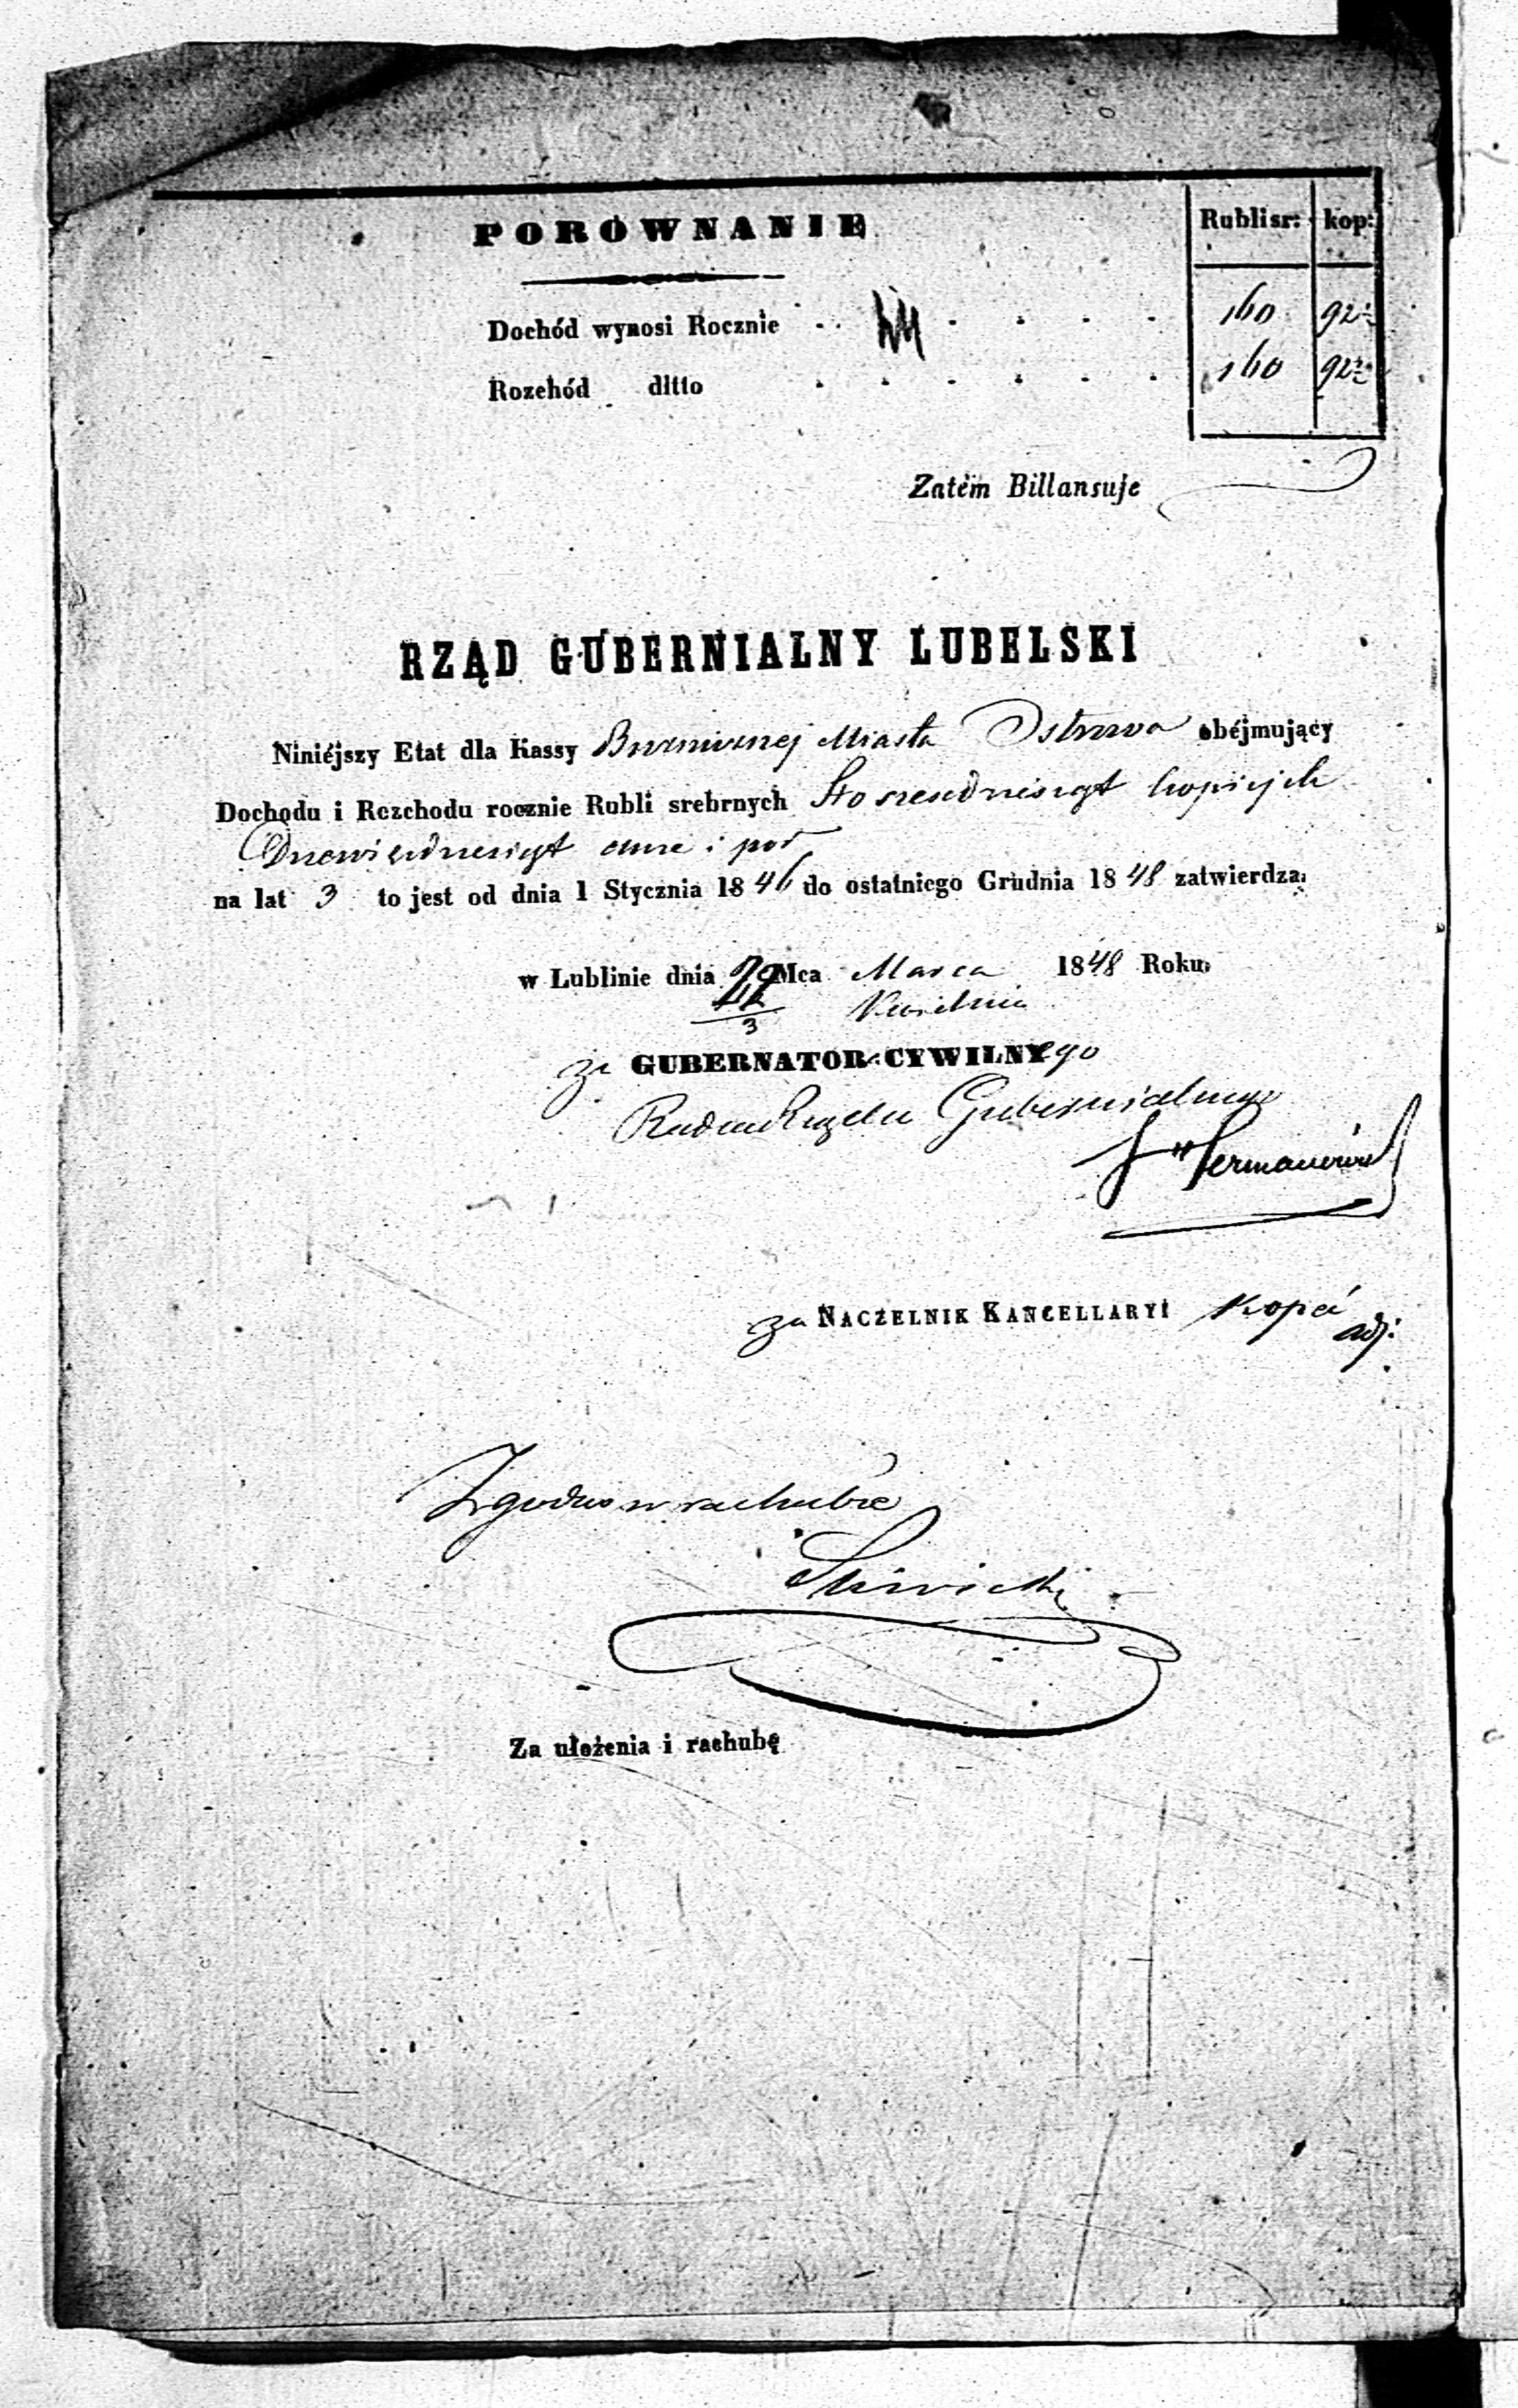 PORÓWNANIE
Rubli sr: kop:
Dochód wynosi Rocznie . . . . . . 160 92½
Rozchód ditto . . . . . . 160 92½
Zatém Billansuje
RZĄD GUBERNIALNY LUBELSKI
Niniéjszy Etat dla Kassy Bożnicznej Miasta Ostrowa obéjmujący
Dochodu i Rozchodu rocznie Rubli srebrnych Sto sześćdziesiąt kopiejek
Dziewięćdziesiąt dwie i pół
na lat 3 to jest od dnia 1 Stycznia 1846 do ostatniego Grudnia 1848 zatwierdza.
w Lublinie dnia Mca Marca 1848 Roku.
3 Kwietnia
za GUBERNATOR CYWILNYego
Radca Rządu Gubernialnego
za NACZELNIK KANCELLARYI Kopeć
adj:
Zgodno w rachubie
Za ułożenia i rachubę